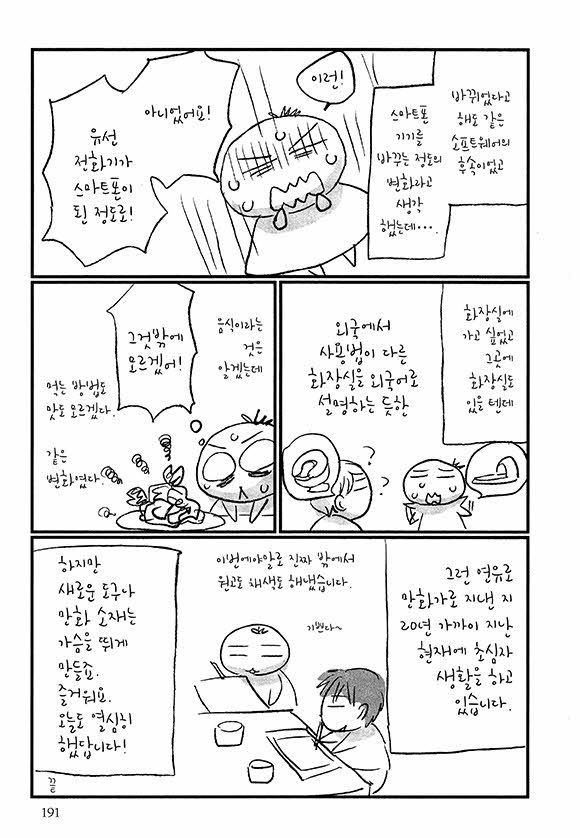 바뀌었다고
해도 같은
소프트웨어의
후속이었고
스마트폰
기기를
바꾸는 정도의
변화라고
생각
했는데····
이런!
아니었어요!
유선
전화기가
스마트폰이
된 정도로!
화장실에
가고 싶었고
그곳에
화장실도
있을 텐데
외국에서
사용법이 다른
화장실을 외국어로
설명하는 듯한
?
?
음식이라는
것은
알겠는데
그것밖에
모르겠어!
먹는 방법도
맛도 모르겠다.
같은
변화였다.
그런 연유로
만화가로 지낸 지
20년 가까이 지난
현재에 초심자
생활을 하고
있습니다.
이번에야말로 진짜 밖에서
원고도 채색도 해냈습니다.
기쁘다~
하지만
새로운 도구나
만화 소재는
가슴을 뛰게
만들죠.
즐거워요.
오늘도 열심히
했답니다!
끝
191